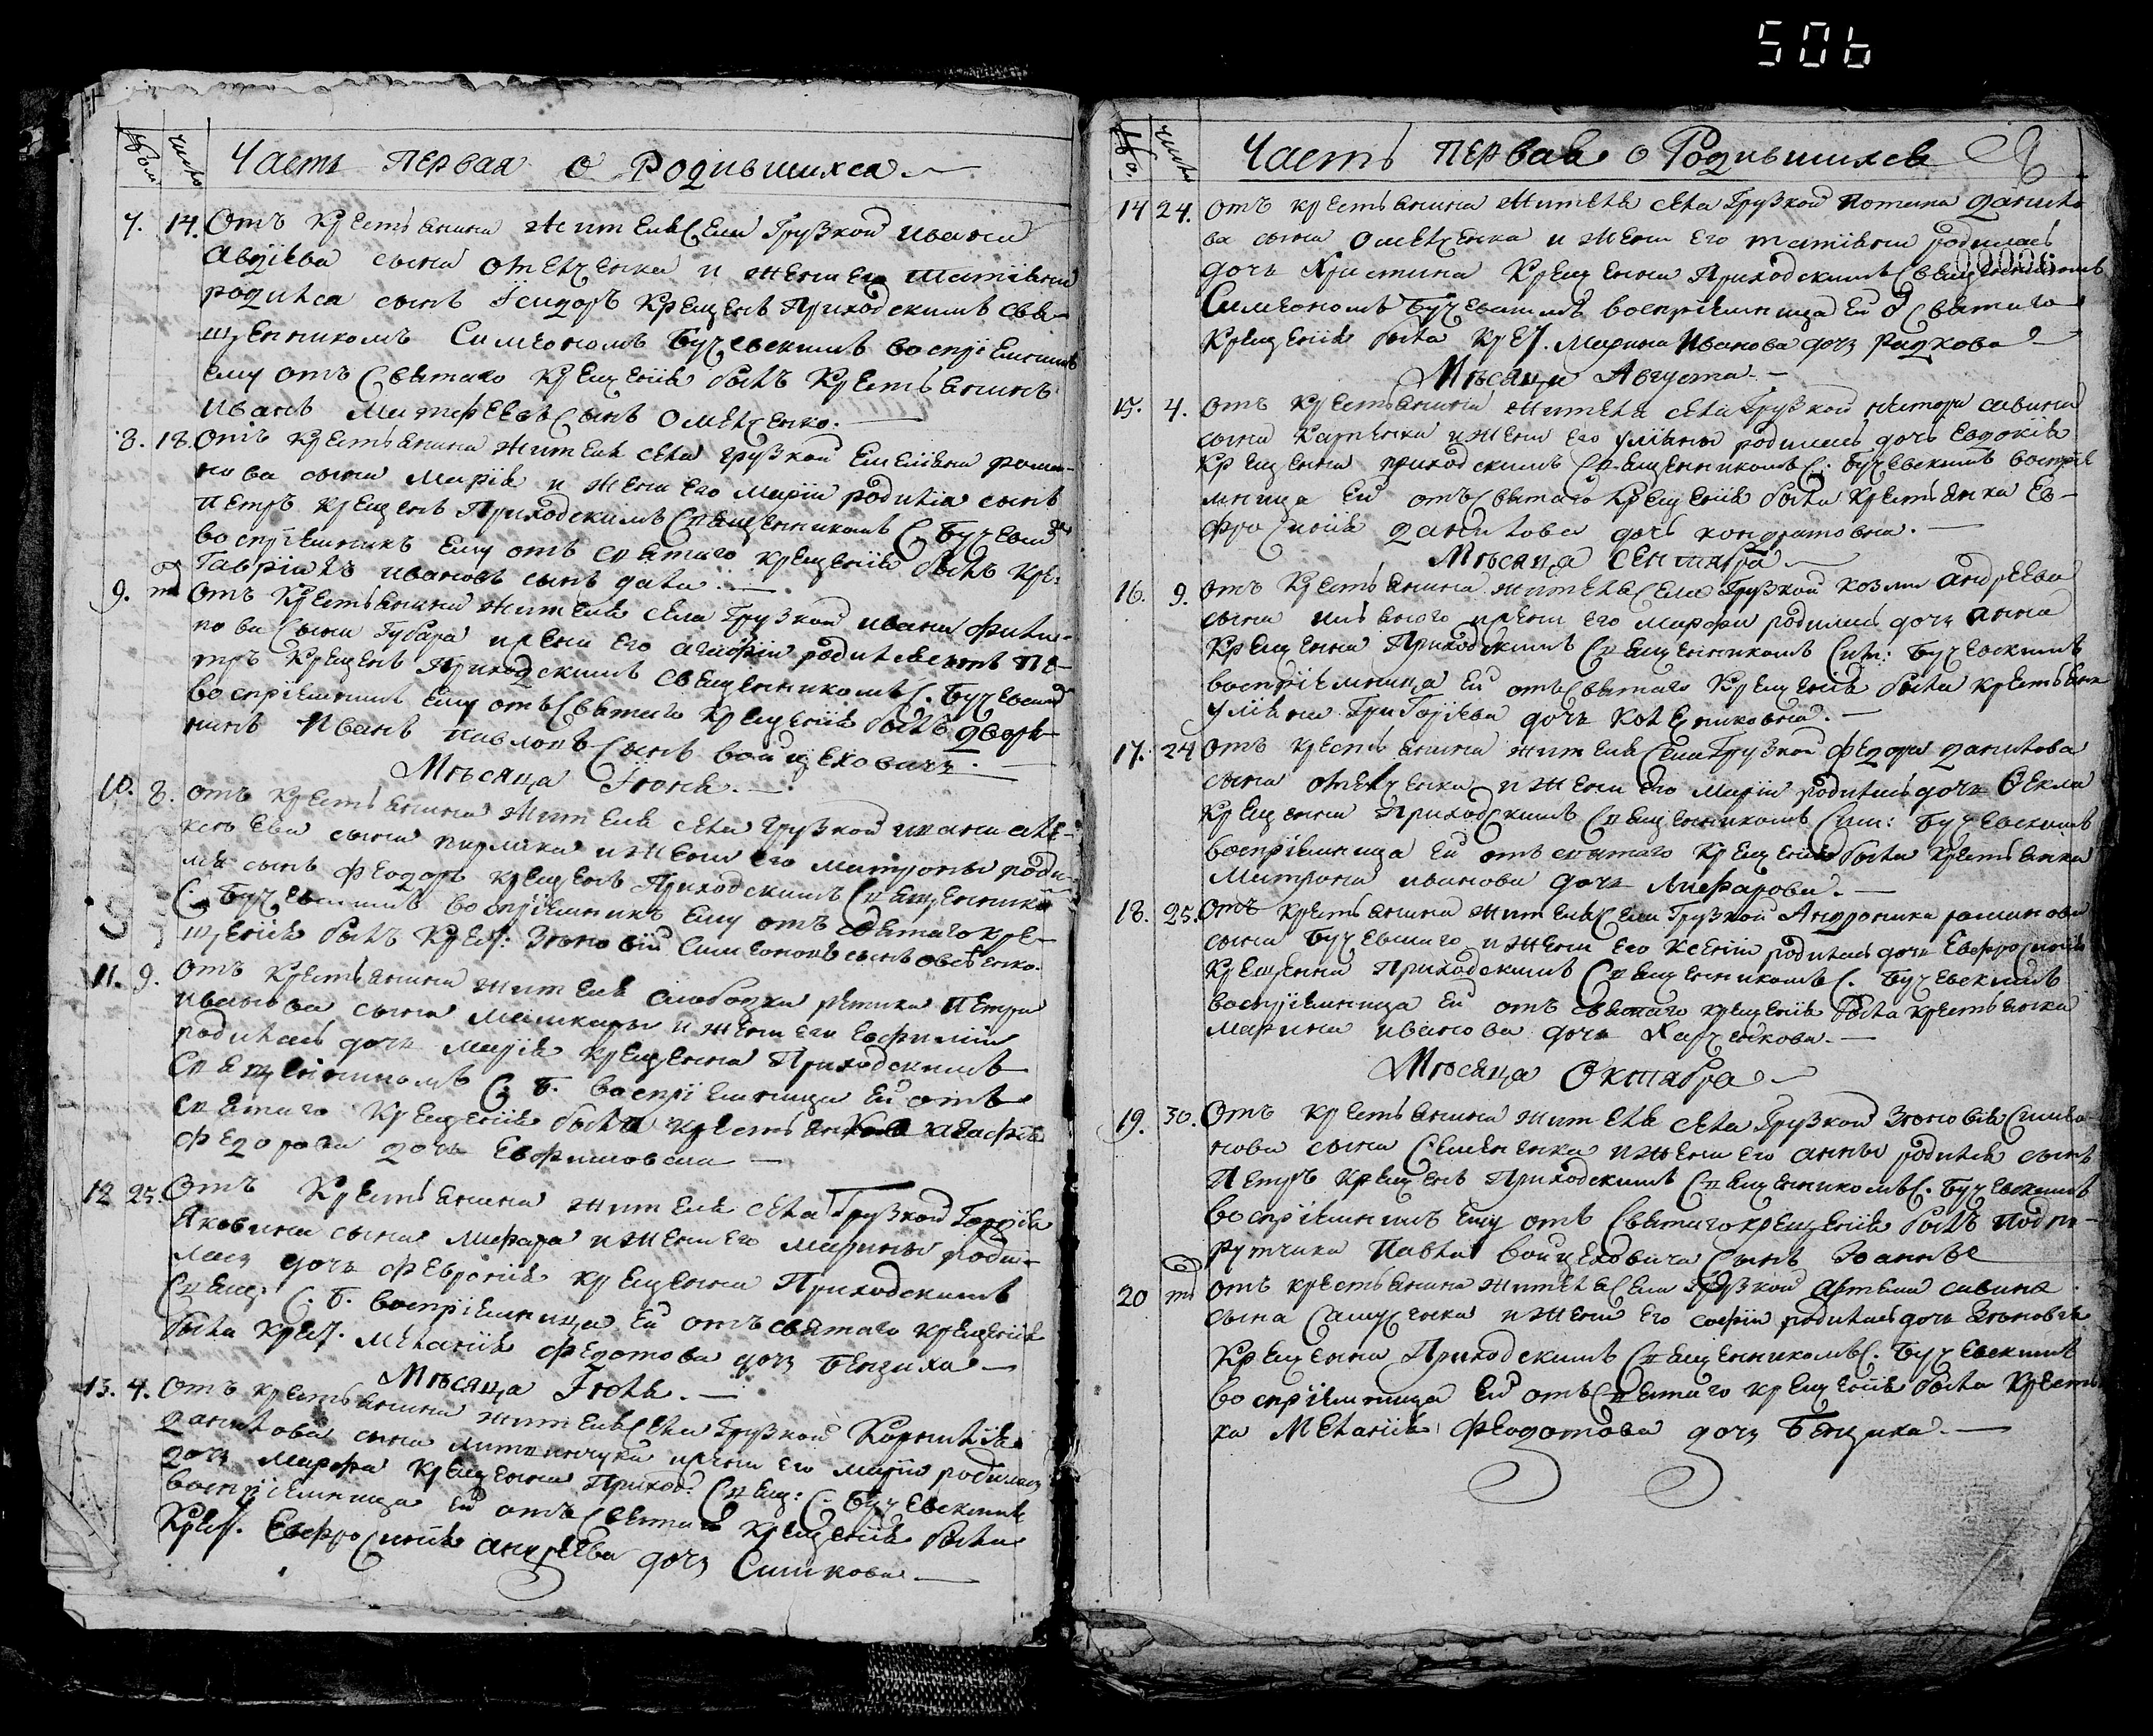 506
Часть первая о Родившихся
числа
7. 14. Отъ крестьянина жителя села Грузкой Ивана
сына и жени его
родился сынъ Ісидоръ крещенъ Приходскимъ свя-
щенникомъ Симеономъ Бучевскимъ воспріемникъ
ему отъ святаго крещенія былъ крестьянинъ
Иванъ сынъ Омелченко.
8. 18. Отъ крестьянина жителя села Грузкой Емеліяна рома-
нова сына и жени его Маріи родился сынъ
Петръ крещенъ Приходскимъ священникомъ С. Бучевски
воспріемникъ ему отъ святаго крещенія былъ кре:
Гавріилъ Ивановъ сынъ
9. Отъ крестьянина жителя села Грузкой Ивана Фили-
пова сына Губара и жени его родился сынъ Пе-
тръ крещенъ Приходскимъ священникомъ С. Бучевски
воспріемникъ ему отъ святаго крещенія былъ дворя-
нинъ Иванъ Павловъ сынъ Войцеховичъ.
Мѣсяца Іюня.
10. 8. отъ крестьянина жителя села Грузкой Ивана Але-
ксѣева сына и жени его Матроны роди-
лся сынъ Феодоръ крещенъ Приходскимъ священнико
С. Бучевскимъ воспріемникъ ему отъ святаго кре-
щенія былъ крест: Зѣновій Симеоновъ сынъ
11. 9. отъ крестьянина жителя слободки Петра
Иванова сына и жени его Евфиміи
родилась дочь Марія крещенна Приходскимъ
священникомъ С. Б. воспріемница ей отъ
святаго крещенія была крестьянка Агафія
Федорова дочь
12 25. Отъ крестьянина жителя села Грузкой Гордія
Яковина сына Лифара и жени его Марины роди-
лась дочь Февронія крещенна Приходскимъ
свящ: С. Б. воспріемница ей отъ святаго крещенія
была крест. Меланія Федотова дочь
Мѣсяца Іюля.
13. 4. отъ крестьянина жителя села Грузкой Корнилія
Данилова сына и жени его Маріи родилась
дочь Марфа крещенна Приход: Свящ: С. Бучевскимъ
воспріемница ей отъ святаго крещенія была
крест. Евфросинія Андреева дочь
Часть первая о Родившихся
числа
00006
14 24. отъ крестьянина жителя села Грузкой Потапа Данило
ва сына Омелченка и жени его Татіяни родилась
дочь Христина крещенна Приходскимъ священникомъ
Симеономъ Бучевскимъ воспріемница ей о святаго
крещенія была крест. Марина Иванова дочь
Мѣсяца Августа.
15. 4. отъ крестьянина жителя села Грузкой Нестора Савина
сына Карпенка и жени его Уліяны родилась дочь Евдокія
крещенна приходскимъ священникомъ С. Бучевскимъ воспріе
мница ей отъ святаго крещенія была крестьянка Ев-
фросинія Данилова дочь Кондратовна.
Мѣсяца Сентября
16. 9. отъ крестьянина жителя села Грузкой Козми Андреева
сына и жени его Марфи родилась дочь Анна
крещенна Приходскимъ священникомъ Сим: Бучевскимъ
воспріемница ей отъ святаго крещенія была крестьянк
Уліяна Григоріева дочь
17. 24 отъ крестьянина жителя села Грузкой Федора Данилова
сына Омелченка и жени его Маріи родилась дочь Ѳекла
крещенна Приходскимъ священникомъ Сим: Бучевскимъ
воспріемница ей отъ святаго крещенія была крестьянка
Матрона Иванова дочь Лифарова.
18. 25. Отъ крестьянина жителя села Грузкой Андроника романова
сына Бучевшаго и жени его Ксеніи родилась дочь Евфросинія
крещенна Приходскимъ священникомъ С. Бучевскимъ
воспріемница ей отъ святаго крещенія была крестьянка
Марина Иванова дочь Харченкова.
Мѣсяца Октября
19. 30. Отъ крестьянина жителя села Грузкой Зѣновія Симео
нова сына Семененка и жени его Анны родился сынъ
Петръ крещенъ Приходскимъ священникомъ С. Бучевскимъ
воспріемникъ ему отъ святаго крещенія былъ подпо-
рутчика Павла Войцеховича сынъ Іоаннъ
20 отъ крестьянина жителя села Грузкой Артема Савина
сына Самусенка и жени его Софіи родилась дочь Зѣновія
крещенна Приходскимъ священникомъ С. Бучевскимъ
воспріемница ей отъ святаго крещенія была кресть
ка Меланія Феодотова дочь